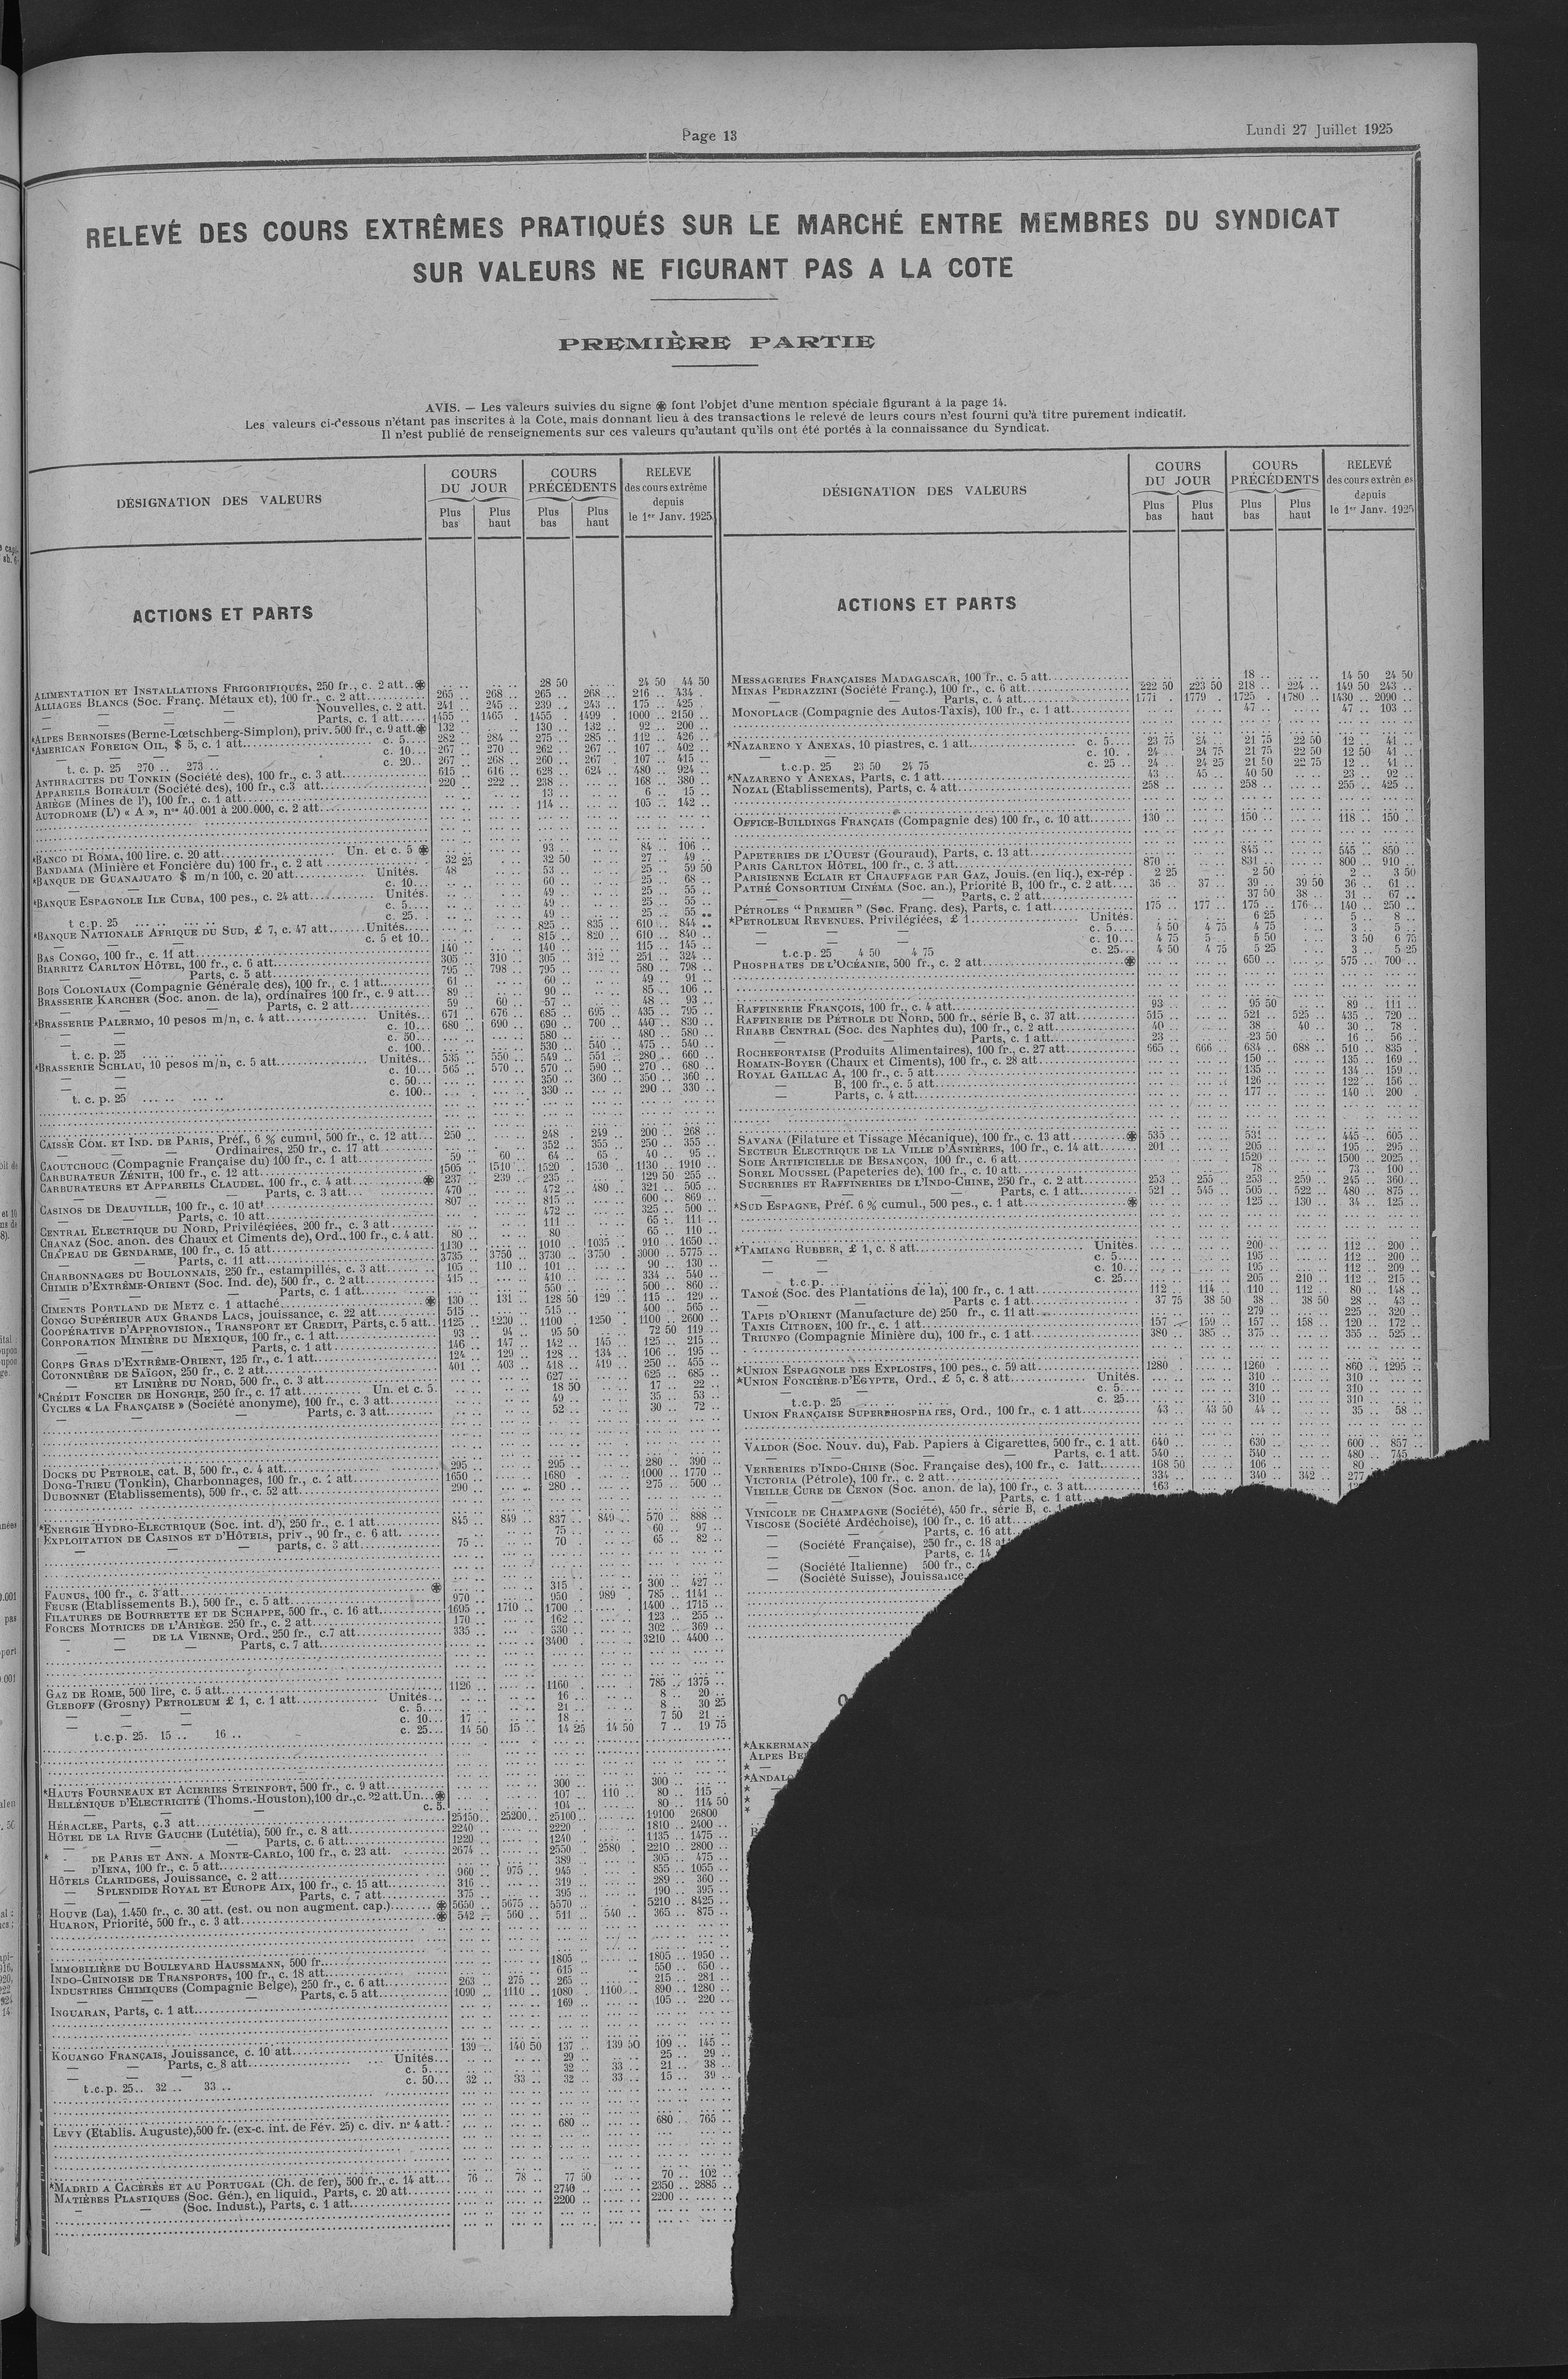 Page 13
Lundi 27 Juillet 1925
RELEVÉ DES COURS EXTRÊMES PRATIQUÉS SUR LE MARCHÉ ENTRE MEMBRES DU SYNDICAT
SUR VALEURS NE FIGURANT PAS A LA COTE
PREMIÈRE PARTIE
AVIS. — Les valeurs suivies du signe ⊛ font l'objet d'une mention spéciale figurant à la page 14.
Les valeurs ci-dessous n'étant pas inscrites à la Cote, mais donnant lieu à des transactions le relevé de leurs cours n'est fourni qu'à titre purement indicatif.
Il n'est publié de renseignements sur ces valeurs qu'autant qu'ils ont été portés à la connaissance du Syndicat.
DÉSIGNATION DES VALEURS
COURS DU JOUR
Plus bas
Plus haut
COURS PRÉCÉDENTS
Plus bas
Plus haut
RELEVE des cours extrême depuis le 1er Janv. 1925
ACTIONS ET PARTS
ALIMENTATION ET INSTALLATIONS FRIGORIFIQUES, 250 fr., c. 2 att..⊛ 28 50 24 50 44 50
ALLIAGES BLANCS (Soc. Franç. Métaux et), 100 fr., c. 2 att. 265 268 265 268 216 434
— — — Nouvelles, c. 2 att. 241 245 239 243 175 425
— — — Parts, c. 1 att. 1455 1465 1455 1499 1000 2150
*ALPES BERNOISES (Berne-Lœtschberg-Simplon), priv. 500 fr., c. 9 att.⊛ 132 130 132 92 200
*AMERICAN FOREIGN OIL, $ 5, c. 1 att. c. 5 282 284 275 285 112 426
— — c. 10 267 270 262 267 107 402
t. c. p. 25 270 .. 273 .. c. 20 267 268 260 267 107 415
ANTHRACITES DU TONKIN (Société des), 100 fr., c. 3 att. 615 616 628 624 480 924
APPAREILS BOIRAULT (Société des), 100 fr., c.3 att. 220 222 238 168 380
ARIÈGE (Mines de l'), 100 fr., c. 1 att. 13 6 15
AUTODROME (L') « A », nos 40.001 à 200.000, c. 2 att. 114 105 142
*BANCO DI ROMA, 100 lire. c. 20 att. Un. et c. 5 ⊛ 93 84 106
BANDAMA (Minière et Foncière du) 100 fr., c. 2 att 32 25 32 50 27 49
*BANQUE DE GUANAJUATO $ m/n 100, c. 20 att. Unités. 48 53 25 59 50
— — c. 10 60 25 68
*BANQUE ESPAGNOLE ILE CUBA, 100 pes., c. 24 att. Unités. 49 25 55
c. 5 49 25 55
t c.p. 25 c. 25 49 25 55
*BANQUE NATIONALE AFRIQUE DU SUD, £ 7, c. 47 att. Unités. 825 835 610 844
— — — c. 5 et 10 815 820 610 840
BAS CONGO, 100 fr., c. 11 att. 140 140 115 145
BIARRITZ CARLTON HÔTEL, 100 fr., c. 6 att. 305 310 305 312 251 324
— — Parts, c. 5 att. 795 798 795 580 798
BOIS COLONIAUX (Compagnie Générale des), 100 fr., c. 1 att. 61 60 49 91
BRASSERIE KARCHER (Soc. anon. de la), ordinaires 100 fr., c. 9 att. 89 90 85 106
— — — Parts, c. 2 att. 59 60 57 48 93
*BRASSERIE PALERMO, 10 pesos m/n, c. 4 att. Unités 671 676 685 695 435 795
— — c. 10 680 690 690 700 440 830
— — c. 50 580 480 580
t. c. p. 25 c. 100 530 540 475 540
*BRASSERIE SCHLAU, 10 pesos m/n, c. 5 att. Unités 535 550 549 551 280 660
— — c. 10 565 570 570 590 270 680
— — c. 50 350 360 350 360
t. c. p. 25 c. 100 330 290 330
CAISSE COM. ET IND. DE PARIS, Préf., 6 % cumul, 500 fr., c. 12 att. 250 248 249 200 268
— — — Ordinaires, 250 fr., c. 17 att. 352 355 250 355
CAOUTCHOUC (Compagnie Française du) 100 fr., c. 1 att. 59 60 64 65 40 95
CARBURATEUR ZÉNITH, 100 fr., c. 12 att. 1505 1510 1520 1530 1130 1910
CARBURATEURS ET APPAREILS CLAUDEL, 100 fr., c. 4 att. ⊛ 237 239 235 129 50 255
— — — Parts, c. 3 att. 470 472 480 321 505
CASINOS DE DEAUVILLE, 100 fr., c. 10 att 807 815 600 869
— — Parts, c. 10 att. 472 325 500
CENTRAL ELECTRIQUE DU NORD, Privilégiées, 200 fr., c. 3 att. 111 65 111
CHANAZ (Soc. anon. des Chaux et Ciments de), Ord., 100 fr., c. 4 att. 80 80 65 110
CHAPEAU DE GENDARME, 100 fr., c. 15 att. 1130 1010 1035 910 1650
— — Parts, c. 11 att. 3735 3750 3730 3750 3000 5775
CHARBONNAGES DU BOULONNAIS, 250 fr., estampillés, c. 3 att. 105 110 101 90 130
CHIMIE D'EXTRÊME-ORIENT (Soc. Ind. de), 500 fr., c. 2 att. 415 410 334 540
— — — Parts, c. 1 att. 550 500 860
CIMENTS PORTLAND DE METZ c. 1 attaché ⊛ 130 131 128 50 129 115 129
CONGO SUPÉRIEUR AUX GRANDS LACS, jouissance, c. 22 att. 515 515 400 565
COOPÉRATIVE D'APPROVISION., TRANSPORT ET CREDIT, Parts, c. 5 att. 1125 1230 1100 1250 1100 2600
CORPORATION MINIÈRE DU MEXIQUE, 100 fr., c. 1 att. 93 94 95 50 72 50 119
— — — Parts, c. 1 att. 146 147 142 145 125 215
CORPS GRAS D'EXTRÊME-ORIENT, 125 fr., c. 1 att. 124 129 128 134 106 195
COTONNIÈRE DE SAÏGON, 250 fr., c. 2 att. 401 403 418 419 250 455
— ET LINIÈRE DU NORD, 500 fr., c. 3 att. 627 625 685
*CRÉDIT FONCIER DE HONGRIE, 250 fr., c. 17 att. Un. et c. 5. 18 50 17 22
CYCLES « LA FRANÇAISE » (Société anonyme), 100 fr., c. 3 att. 49 35 53
— — — Parts, c. 3 att. 52 30 72
DOCKS DU PETROLE, cat. B, 500 fr., c. 4 att. 295 295 280 390
DONG-TRIEU (Tonkin), Charbonnages, 100 fr., c. 1 att. 1650 1680 1000 1770
DUBONNET (Etablissements), 500 fr., c. 52 att. 290 280 275 500
*ENERGIE HYDRO-ELECTRIQUE (Soc. int. d'), 250 fr., c. 1 att. 845 849 837 849 570 888
EXPLOITATION DE CASINOS ET D'HÔTELS, priv., 90 fr., c. 6 att. 75 60 97
— — — parts, c. 3 att. 75 70 65 82
FAUNUS, 100 fr., c. 3 att. ⊛ 315 300 427
FEUSE (Etablissements B.), 500 fr., c. 5 att. 970 950 989 785 1141
FILATURES DE BOURRETTE ET DE SCHAPPE, 500 fr., c. 16 att. 1695 1710 1700 1400 1715
FORCES MOTRICES DE L'ARIÈGE. 250 fr., c. 2 att. 170 162 123 255
— — DE LA VIENNE, Ord., 250 fr., c.7 att. 335 330 302 369
— — — Parts, c. 7 att. 3400 3210 4400
GAZ DE ROME, 500 lire, c. 5 att. 1126 1160 785 1375
GLEBOFF (Grosny) PETROLEUM £ 1, c. 1 att. Unités 16 8 20
c. 5 21 8 30 25
— — — c. 10 17 18 7 50 21
t.c.p. 25. 15 .. 16 .. c. 25 14 50 15 14 25 14 50 7 19 75
*HAUTS FOURNEAUX ET ACIERIES STEINFORT, 500 fr., c. 9 att. 300 300
HELLÉNIQUE D'ELECTRICITÉ (Thoms.-Houston), 100 dr., c. 22 att. Un. ⊛ 107 110 80 115
— — c. 5. 104 80 114 50
HÉRACLEE, Parts, c.3 att. 25150 25200 25100 19100 26800
HÔTEL DE LA RIVE GAUCHE (Lutétia), 500 fr., c. 8 att. 2240 2220 1810 2400
— — — Parts, c. 6 att. 1220 1240 1135 1475
* - DE PARIS ET ANN. A MONTE-CARLO, 100 fr., c. 23 att. 2674 2550 2580 2210 2800
— D'IENA, 100 fr., c. 5 att. 389 305 475
HÔTELS CLARIDGES, Jouissance, c. 2 att. 960 975 945 855 1055
— SPLENDIDE ROYAL ET EUROPE AIX, 100 fr., c. 15 att. 316 319 289 360
— — — Parts, c. 7 att. 375 395 190 395
HOUVE (La), 1.450 fr., c. 30 att. (est. ou non augment. cap.) ⊛ 5650 5675 5570 5210 8425
HUARON, Priorité, 500 fr., c. 3 att. ⊛ 542 560 511 540 365 875
IMMOBILIÈRE DU BOULEVARD HAUSSMANN, 500 fr. 1805 1805 1950
INDO-CHINOISE DE TRANSPORTS, 100 fr., c. 18 att. 615 550 650
INDUSTRIES CHIMIQUES (Compagnie Belge), 250 fr., c. 6 att. 263 275 265 215 281
— — — Parts, c. 5 att. 1090 1110 1080 1100 890 1280
INGUARAN, Parts, c. 1 att. 169 105 220
KOUANGO FRANÇAIS, Jouissance, c. 10 att. 139 140 50 137 139 50 109 145
— — Parts, c. 8 att. Unités 29 25 29
— — c. 5 32 33 21 38
t.c.p. 25.. 32 .. 33 .. c. 50 32 33 32 33 15 39
LEVY (Etablis. Auguste), 500 fr. (ex-c. int. de Fév. 25) c. div. n° 4 att. 680 680 765
*MADRID A CACÉRÈS ET AU PORTUGAL (Ch. de fer), 500 fr., c. 14 att. 76 78 77 50 70 102
MATIÈRES PLASTIQUES (Soc. Gén.), en liquid., Parts, c. 20 att. 2740 2350 2885
— — (Soc. Indust.), Parts, c. 1 att. 2200 2200
DÉSIGNATION DES VALEURS
COURS DU JOUR
Plus bas
Plus haut
COURS PRÉCÉDENTS
Plus bas
Plus haut
RELEVÉ des cours extrêmes depuis le 1er Janv. 1925
ACTIONS ET PARTS
MESSAGERIES FRANÇAISES MADAGASCAR, 100 fr., c. 5 att. 18 14 50 24 50
MINAS PEDRAZZINI (Société Franç.), 100 fr., c. 6 att. 222 50 223 50 218 224 149 50 243
— — Parts, c. 4 att. 1771 1779 1725 1780 1430 2090
MONOPLACE (Compagnie des Autos-Taxis), 100 fr., c. 1 att. 47 47 103
*NAZARENO Y ANEXAS, 10 piastres, c. 1 att. c. 5 23 75 24 21 75 22 50 12 41
— — c. 10 24 24 75 21 75 22 50 12 50 41
t.c.p. 25 23 50 24 75 c. 25 24 24 25 21 50 22 75 12 41
*NAZARENO Y ANEXAS, Parts, c. 1 att. 43 45 40 50 23 92
NOZAL (Etablissements), Parts, c. 4 att. 258 258 255 425
OFFICE-BUILDINGS FRANÇAIS (Compagnie des) 100 fr., c. 10 att. 130 150 118 150
PAPETERIES DE L'OUEST (Gouraud), Parts, c. 13 att. 845 545 850
PARIS CARLTON HÔTEL, 100 fr., c. 3 att. 870 831 800 910
PARISIENNE ECLAIR ET CHAUFFAGE PAR GAZ, Jouis. (en liq.), ex-rép. 2 25 2 50 2 3 50
PATHÉ CONSORTIUM CINÉMA (Soc. an.), Priorité B, 100 fr., c. 2 att. 36 37 39 39 50 36 61
— — — Parts, c. 2 att. 37 50 38 31 67
PÉTROLES “ PREMIER ” (Soc. Franç. des), Parts, c. 1 att. 175 177 175 176 140 250
*PETROLEUM REVENUES, Privilégiées, £ 1 Unités 6 25 5 8
— — — c. 5 4 50 4 75 4 75 3 5
— — — c. 10 4 75 5 5 50 3 50 6 75
t.c.p. 25 4 50 4 75 c. 25 4 50 4 75 5 25 3 5 25
PHOSPHATES DE L'OCÉANIE, 500 fr., c. 2 att. ⊛ 650 575 700
RAFFINERIE FRANÇOIS, 100 fr., c. 4 att. 93 95 50 89 111
RAFFINERIE DE PÉTROLE DU NORD, 500 fr., série B, c. 37 att. 515 521 525 435 720
RHARB CENTRAL (Soc. des Naphtes du), 100 fr., c. 2 att. 40 38 40 30 78
— — Parts, c. 1 att. 23 23 50 16 56
ROCHEFORTAISE (Produits Alimentaires), 100 fr., c. 27 att. 665 666 684 688 510 835
ROMAIN-BOYER (Chaux et Ciments), 100 fr., c. 28 att. 150 135 169
ROYAL GAILLAC A, 100 fr., c. 5 att. 135 134 159
— B, 100 fr., c. 5 att. 126 122 156
— Parts, c. 4 att. 177 140 200
SAVANA (Filature et Tissage Mécanique), 100 fr., c. 13 att. ⊛ 535 531 445 605
SECTEUR ELECTRIQUE DE LA VILLE D'ASNIÈRES, 100 fr., c. 14 att. 201 205 195 295
SOIE ARTIFICIELLE DE BESANÇON, 100 fr., c. 6 att. 1520 1500 2025
SOREL MOUSSEL (Papeteries de), 100 fr., c. 10 att. 78 73 100
SUCRERIES ET RAFFINERIES DE L'INDO-CHINE, 250 fr., c. 2 att. 253 255 253 259 245 360
— — — Parts, c. 1 att. 521 545 505 522 480 875
*SUD ESPAGNE, Préf. 6 % cumul., 500 pes., c. 1 att. ⊛ 125 130 34 125
*TAMIANG RUBBER, £ 1, c. 8 att. Unités. 200 112 200
c. 5 195 112 200
— — c. 10 195 112 209
t.c.p. c. 25 205 210 112 215
TANOÉ (Soc. des Plantations de la), 100 fr., c. 1 att. 112 114 110 112 80 148
— — Parts c. 1 att. 37 75 38 50 38 38 50 28 43
TAPIS D'ORIENT (Manufacture de) 250 fr., c. 11 att. 279 225 320
TAXIS CITROEN, 100 fr., c. 1 att. 157 159 157 158 120 172
TRIUNFO (Compagnie Minière du), 100 fr., c. 1 att. 380 385 375 355 525
*UNION ESPAGNOLE DES EXPLOSIFS, 100 pes., c. 59 att. 1280 1260 860 1295
*UNION FONCIÈRE D'EGYPTE, Ord., £ 5, c. 8 att. Unités. 310 310
— — c. 5 310 310
t.c.p. 25 c. 25 310 310
UNION FRANÇAISE SUPERPHOSPHATES, Ord., 100 fr., c. 1 att. 43 43 50 44 35 58
VALDOR (Soc. Nouv. du), Fab. Papiers à Cigarettes, 500 fr., c. 1 att. 640 630 600 857
— — — Parts, c. 1 att. 540 540 480 745
VERRERIES D'INDO-CHINE (Soc. Française des), 100 fr., c. 1att. 168 50 106 80
VICTORIA (Pétrole), 100 fr., c. 2 att. 334 340 342 277
VIEILLE CURE DE CENON (Soc. anon. de la), 100 fr., c. 3 att. 163
— — Parts, c. 1 att.
VINICOLE DE CHAMPAGNE (Société), 450 fr., série B, c.
VISCOSE (Société Ardéchoise), 100 fr., c. 16 att.
— — Parts, c. 16 att.
— (Société Française), 250 fr., c. 18 at
— — Parts, c. 14
— (Société Italienne) 500 fr., c.
— (Société Suisse), Jouissance,
*AKKERMAN
ALPES BE
*ANDALO